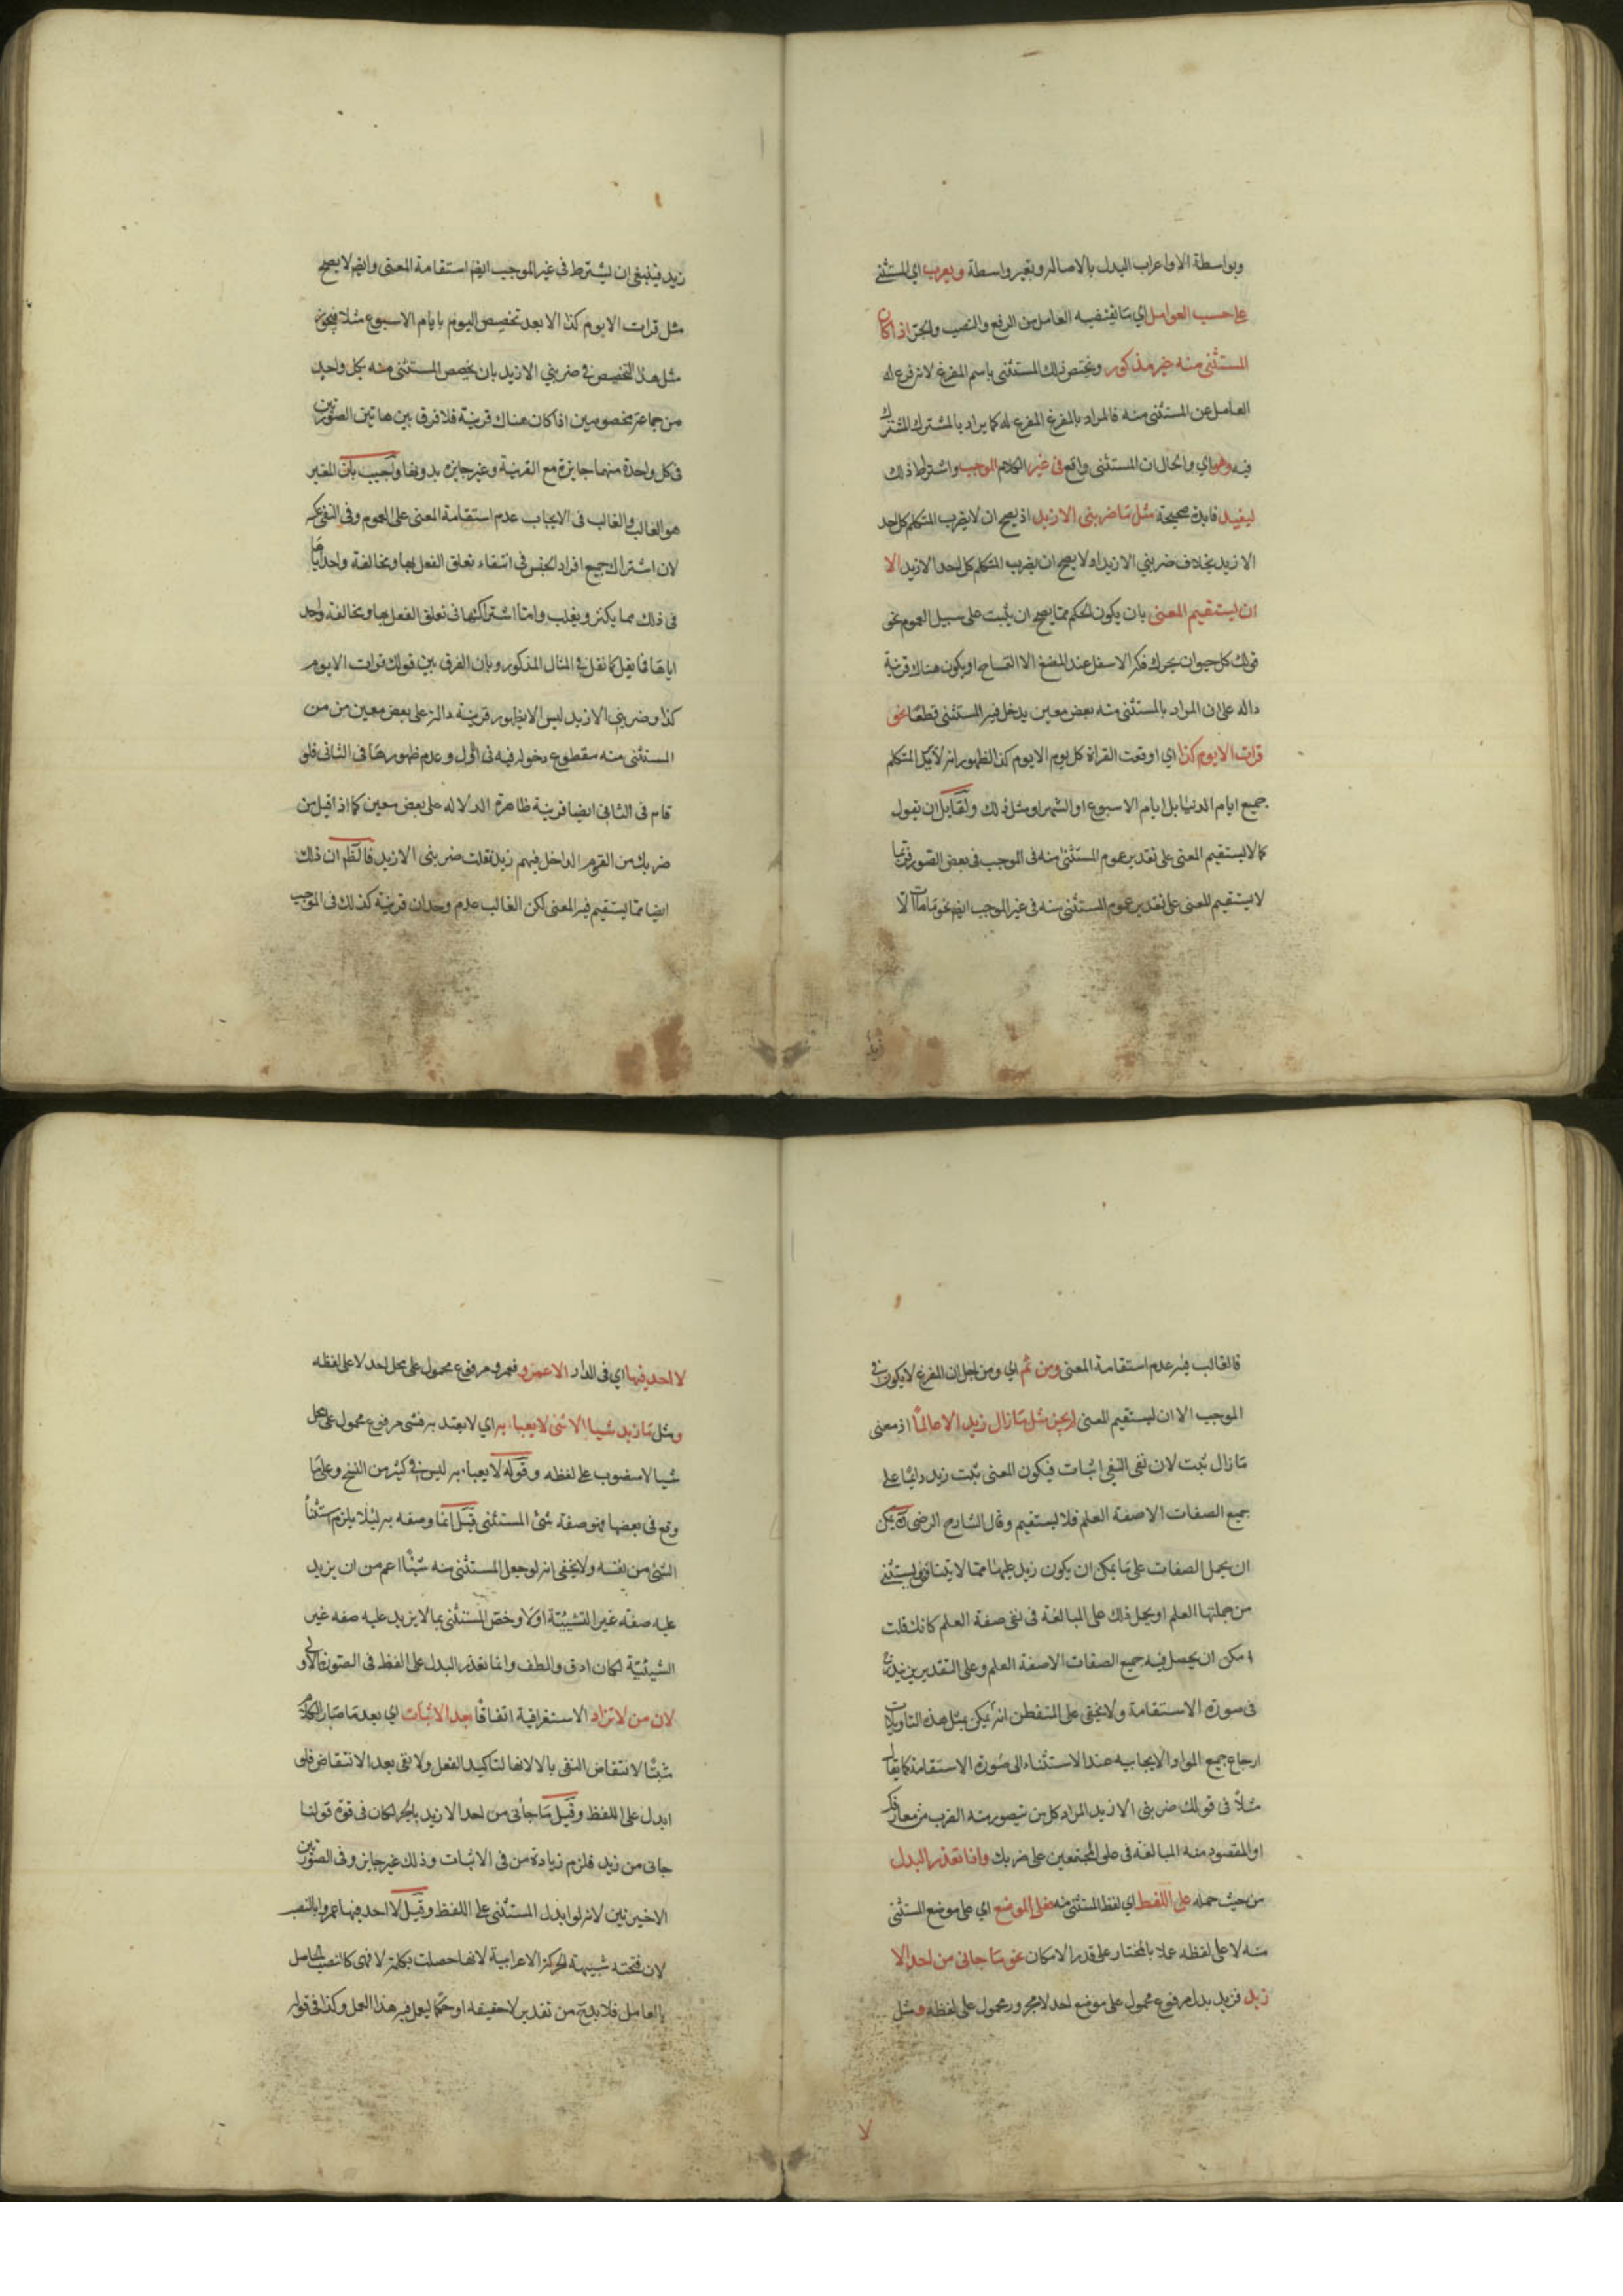 وبواسطة الا واعراب البدل بالاصالة وبغير واسطة ويعرب اي المستثنى
على حسب العوامل اي بما يقتضيه العامل من الرفع والنصب والجر اذا كان
المستثنى منه غير مذكور ويختص ذلك المستثنى باسم المفرغ لانه فرغ له
العامل عن المستثنى منه فالمراد بالمفرغ المفرغ له كما يراد بالمشترك المشترك
فيه وهو اي والحال ان المستثنى واقع في غير الكلام الموجب واشترط ذلك
ليفيد فايدة صحيحة مثل ما ضربني الا زيد اذ يصح ان لا يضرب المتكلم كل احد
الا زيد بخلاف ضربني الا زيد اذ لا يصح ان يضرب المتكلم كل احد الا زيد الا
ان يستقيم المعنى بان يكون الحكم مما يصح ان يثبت على سبيل العموم نحو
قولك كل حيوان يحرك فكه الاسفل عند المضغ الا التمساح او يكون هناك قرينة
دالة على ان المراد بالمستثنى منه بعض معين يدخل فيه المستثنى قطعا نحو
قرات الا يوم كذا اي اوقعت القراة كل يوم الا يوم كذا لظهور انه لا يريد المتكلم
جميع ايام الدنيا بل ايام الاسبوع او الشهر او مثل ذلك ولقايل ان يقول
كما لا يستقيم المعنى على تقدير عموم المستثنى منه في الموجب في بعض الصور فربما
لا يستقيم المعنى على تقدير عموم المستثنى منه في غير الموجب ايضا نحو ما مات الا
زيد
زيد فينبغي ان يشترط في غير الموجب ايضا استقامة المعنى وايضا لا يصح
مثل قرات الا يوم كذا الا بعد تخصيص اليوم بايام الاسبوع مثلا فيجوز
مثل هذا التخصيص في ضربني الا زيد بان يخصص المستثنى منه بكل واحد
من جماعة مخصوصين اذا كان هناك قرينة فلا فرق بين هاتين الصورتين
في كل واحدة منهما جايزة مع القرينة وغير جايزه بدونها واجيب بان المعتبر
هو الغالب والغالب في الايجاب عدم استقامة المعنى على العموم وفي النفي عكسه
لان اشتراك جميع افراد الجنس في انتفاء تعلق الفعل بها ومخالفة واحد اياها
في ذلك مما يكثر ويغلب واما اشتراكها في تعلق الفعل بها ومخالفة واحد
اياها فما يقل كما نقل في المثال المذكور وبان الفرق بين قولك قرات الا يوم
كذا وضربني الا زيد ليس الا بظهور قرينة دالة على بعض معين من من
المستثنى منه مقطوع دخوله فيه في الاول وعدم ظهورها في الثاني فلو
قام في الثاني ايضا قرينة ظاهرة الدلالة على بعض معين كما اذا قيل من
ضربك من القوم الداخل فيهم زيد فقلت ضربني الا زيد فالظاهر ان ذلك
ايضا مما يستقيم فيه المعنى لكن الغالب عدم وجدان قرينة كذلك في الموجب
فالغالب فيه عدم استقامة المعنى ومن ثم اي ومن اجل ان المفرغ لا يكون في
الموجب الا ان يستقيم المعنى لم يجز مثل ما زال زيد الا عالما اذ معنى
ما زال ثبت لان نفي النفي اثبات فيكون المعنى ثبت زيد دايما على
جميع الصفات الا صفة العلم فلا يستقيم وقال الشارح الرضي يمكن
ان يحمل الصفات على ما يمكن ان يكون زيد عليها مما لا يتناقض ويستثنى
من جملتها العلم او يحمل ذلك على المبالغة في نفي صفة العلم كانك قلت
امكن ان يحصل فيه جميع الصفات الا صفة العلم وعلى التقديرين
في صورة الاستقامة ولا يخفى على المتفطن انه يمكن بمثل هذه التاويلات
ارجاع جميع المواد الايجابيه عند الاستثناء الى صورة الاستقامة كما يقال
مثلا في قولك ضربني الا زيد المراد كل من يتصور منه الضرب من معارفك
او المقصود منه المبالغة في المجتمعين على ضربك واذا تعذر البدل
من حيث حمله على اللفظ اي لفظ المستثنى منه فعلى الموضع اي على موضع المستثنى
منه لا على لفظه عملا بالمختار على قدر الامكان نحو ما جاني من احد الا
زيد فزيد بدل مرفوع محمول على موضع احد لا مجرور محمول على لفظه ومثل
لا
لا احد فيها اي في الدار الا عمرو فعمرو مرفوع محمول على محل احد لا على لفظه
ومثل ما زيد شيا الا شئ لا يعبا به اي لا يعتد به فشئ مرفوع محمول على محل
شيا لا منصوب على لفظه وقوله لا يعبا به ليس في كثير من النسخ وعلى ما
وقع في بعضها فهو صفة شئ المستثنى قيل انما وصفه به ليلا يلزم استثناء
الشئ من نفسه ولا يخفى انه لو جعل المستثنى منه شيئا اعم من ان يزيد
عليه صفة غير الشيئية او لا وخص المستثنى بما لا يزيد عليه صفه غير
الشيئية لكان ادق والطف وانما تعذر البدل على اللفظ في الصورة الاولى
لان من لا تزاد الاستغراقية اتفاقا بعد الاثبات اي بعد ما صار الكلام
مثبتا لانتقاض النفي بالا لانها لتاكيد الفعل ولا نفي بعد الانتقاض فلو
ابدل على اللفظ وقيل ما جأني من احد الا زيد بالجر لكان في قوة قولنا
جاني من زيد فلزم زيادة من في الاثبات وذلك غير جايز وفي الصورتين
الاخيرتين لانه لو ابدل المستثنى على اللفظ وقيل لا احد فيها الا عمروا بالنصب
لان فتحته شبيهة بالحركة الاعرابية لانها حصلت بكلمة لا فهي كالنصب الحاصل
بالعامل فلا بد من تقدير لا حقيقة او حكما ليعمل فيه هذا العمل وكذا في قوله